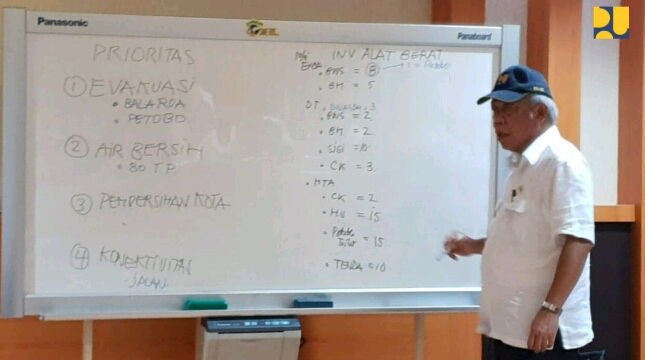 Panasonic
Panaboard
PU
PRIORITAS
① EVAKUASI
• BALAROA
• PETOBO
② AIR BERSIH
• 80 TP
③ PEMBERSIHAN KOTA
④ KONEKTIVITAS
JALAN
INV ALAT BERAT
• BWS = 8
• BM = 5
DT
• BWS = 2
• BM = 2
• SIGI = 10
• CK = 3
• MTA
• CK = 2
• HU = 15
= 15
• TENDA = 10